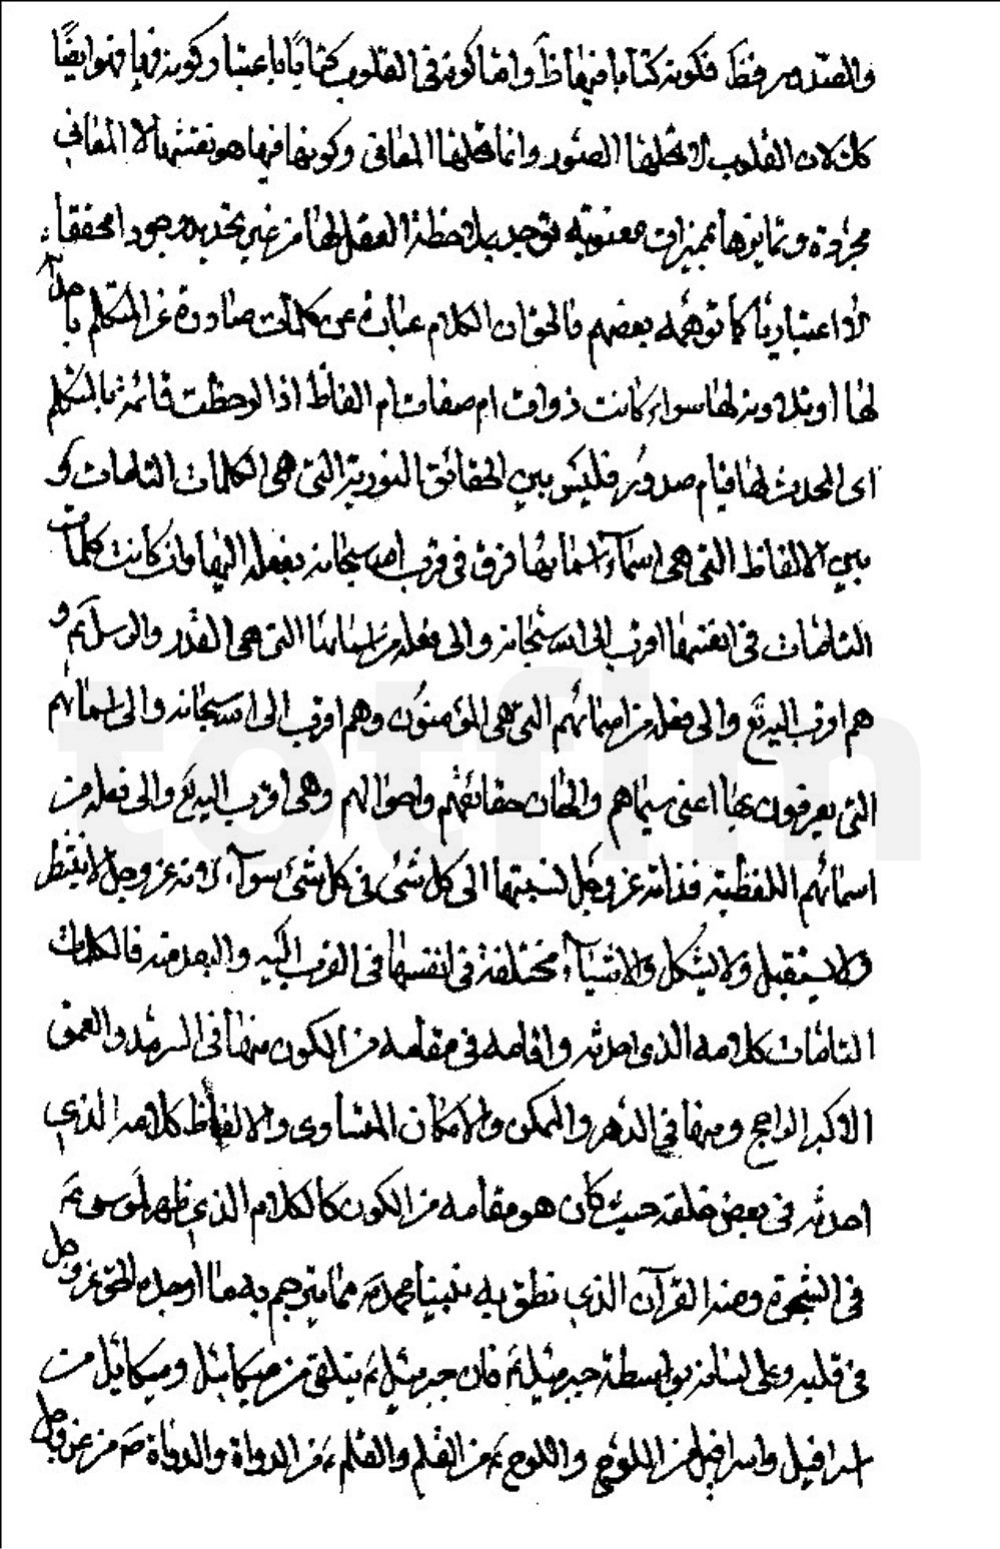 والصدور فقط فكونه كتابا فيها ظ واما كونه فى القلوب كتابا باعتبار كونه فيها فهو ايضا
كك لان القلوب لا تحلها الصور وانما تحلها المعانى وكونها فيها هو نقشها لا المعانى
مجردة وتمايزها بمميزات معنوية توجد بملاحظة العقل لها من غير تحديد وجودا محققا
لا اعتباريا كما توهمه بعضهم فالحق ان الكلام عبارة عن كلمات صادرة عن المتكلم باحداثه
لها او بتلاوته لها سواء كانت ذوات ام صفات ام الفاظ اذا لوحظت قائمة بالمتكلم
اى المحدث لها قيام صدور فليس بين الحقائق النورية التى هى الكلمات التامات و
بين الالفاظ التى هى اسماء اسمائها فرق فى قرب الله سبحانه بفعله اليها وان كانت كلمات
التامات فى انفسها اقرب الى الله سبحانه والى فعله من اسمائها التى هى القدر والرسل ع و
هم اقرب اليه تع والى فعله من اسمائهم التى هى المؤمنون وهم اقرب الى الله سبحانه والى اسمائهم
التى يعرفون بها اعنى سيماهم والحان حقائقهم واحوالهم وهى اقرب اليه تع والى فعله من
اسمائهم اللفظية فذاته عز وجل نسبتها الى كل شئ فى كل شئ سوآء لانه عز وجل لا ينتظر
ولا يستقبل ولا يشكل والاشياء مختلفة فى انفسها فى القرب اليه والبعد منه فالكلمات
التامات كلامه الذى احدثه واقامه فى مقامه من الكون منها فى السرمد والعمق
الاكبر الراجح ومنها فى الدهر والممكن والامكان المتساوى والالفاظ كلامه الذى
احدثه فى بعض خلقه حيث كان هو مقامه من الكون كالكلام الذى ظهر لموسى ع
فى الشجرة ومنه القرآن الذى نطق به نبينا محمد ص مما يترجم به ما اوجده الحق عز وجل
فى قلبه وعلى لسانه بواسطة جبرئيل ع فان جبرئيل ع يتلقى من ميكائيل وميكائيل من
اسرافيل واسرافيل من اللوح واللوح ع من القلم والقلم ع من الدواة والدواة ص من عز وجل